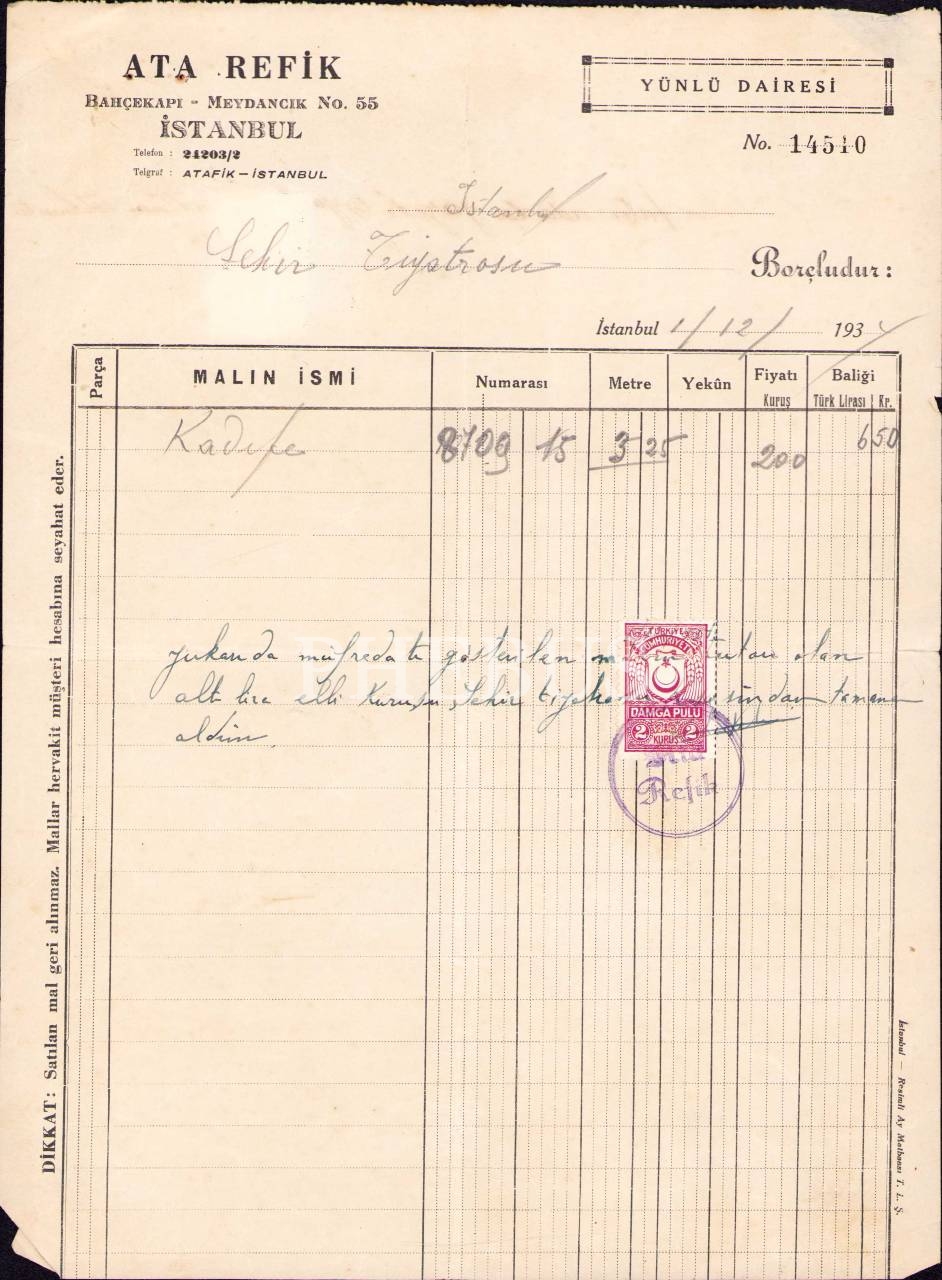 ATA REFİK
BAHÇEKAPI - MEYDANCIK No. 55
İSTANBUL
Telefon : 24203/2
Telgraf : ATAFİK — İSTANBUL
YÜNLÜ DAİRESİ
No. 14510
İstanbul
Şehir Tiyatrosu
Borçludur:
İstanbul 1/12/ 1934
Parça MALIN İSMİ Numarası Metre Yekûn Fiyatı Kuruş Baliği Türk Lirası Kr.
Kadife 8709 15 3 25 200 6 50
yukarıda müfredatı gösterilen olan
altı lira elli kuruşu Şehir tamamen
aldım
TÜRKİYE
CUMHURİYETİ
DAMGA PULU
2 KURUŞ 2
Ata
Refik
DİKKAT: Satılan mal geri alınmaz. Mallar hervakit müşteri hesabına seyahat eder.
İstanbul — Resimli Ay Matbaası T. L. Ş.